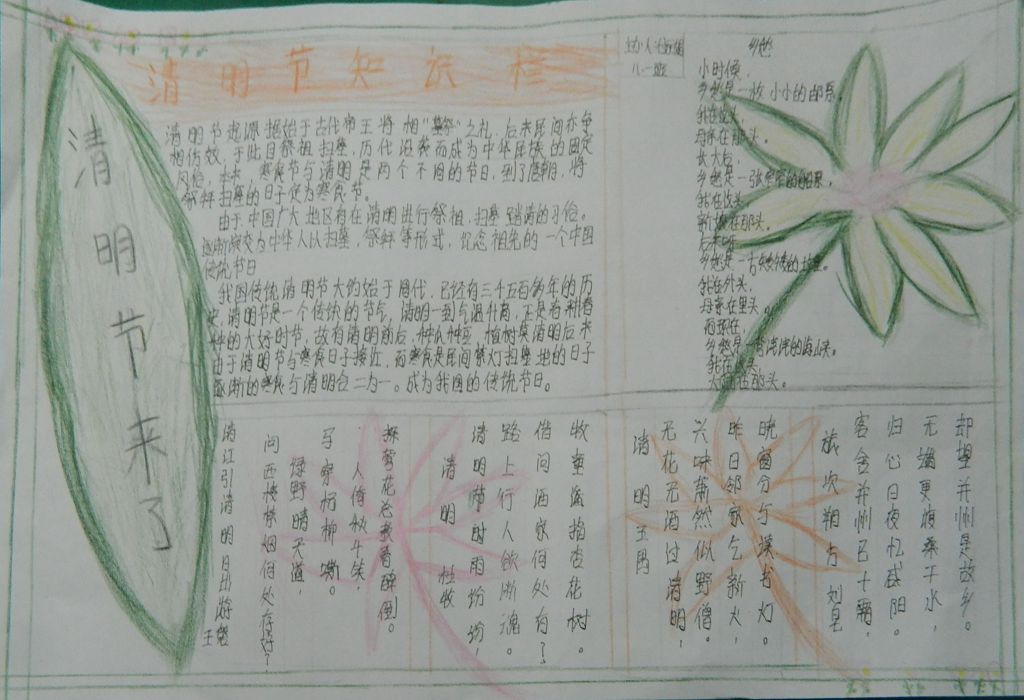 清明节来了
清明节知识栏
清明节起源据始于古代帝王将相"墓祭"之礼，后来民间亦争
相仿效，于此日祭祖扫墓，历代沿袭而成为中华民族的固定
风俗，本来，寒食节与清明是两个不同的节日，到了唐朝，将
祭拜扫墓的日子定为寒食节。
由于中国广大地区有在清明进行祭祖、扫墓、踏清的习俗。
逐渐演变为中华人以扫墓、祭拜等形式，纪念祖先的一个中国
传统节日
我国传统清明节大约始于周代，已经有二千五百多年的历
史，清明节是一个传统的节气，清明一到气温升高，正是春耕春
种的大好时节，故有清明前后，种瓜种豆，植树莫清明后来
由于清明节与寒食日子接近，而寒食是民间禁火扫墓地的日子
逐渐的寒食与清明合二为一。成为我国的传统节日。
八、一班
乡愁
小时候，
乡愁是一枚小小的邮票，
我在这头，
母亲在那头。
长大后，
乡愁是一张窄窄的船票，
我在这头，
新娘在那头。
后来啊，
乡愁是一方矮矮的坟墓。
我在外头，
母亲在里头。
而现在，
乡愁是一湾浅浅的海峡。
我在这头，
大陆在那头。
旅次朔方 刘皂
客舍并州已十霜，
归心日夜忆咸阳。
无端更渡桑干水，
却望并州是故乡。
清明 王禹
无花无酒过清明，
兴味萧然似野僧。
昨日邻家乞新火，
晓窗分与读书灯。
清明 杜牧
清明节时雨纷纷，
路上行人欲断魂。
借问酒家何处有了
牧童遥指杏花树。
清江引清明日出游 王磐
问西楼禁烟何处好？
绿野晴天道，
写穿杨柳嘶。
人倚秋千笑，
探莺花总教春醉倒。